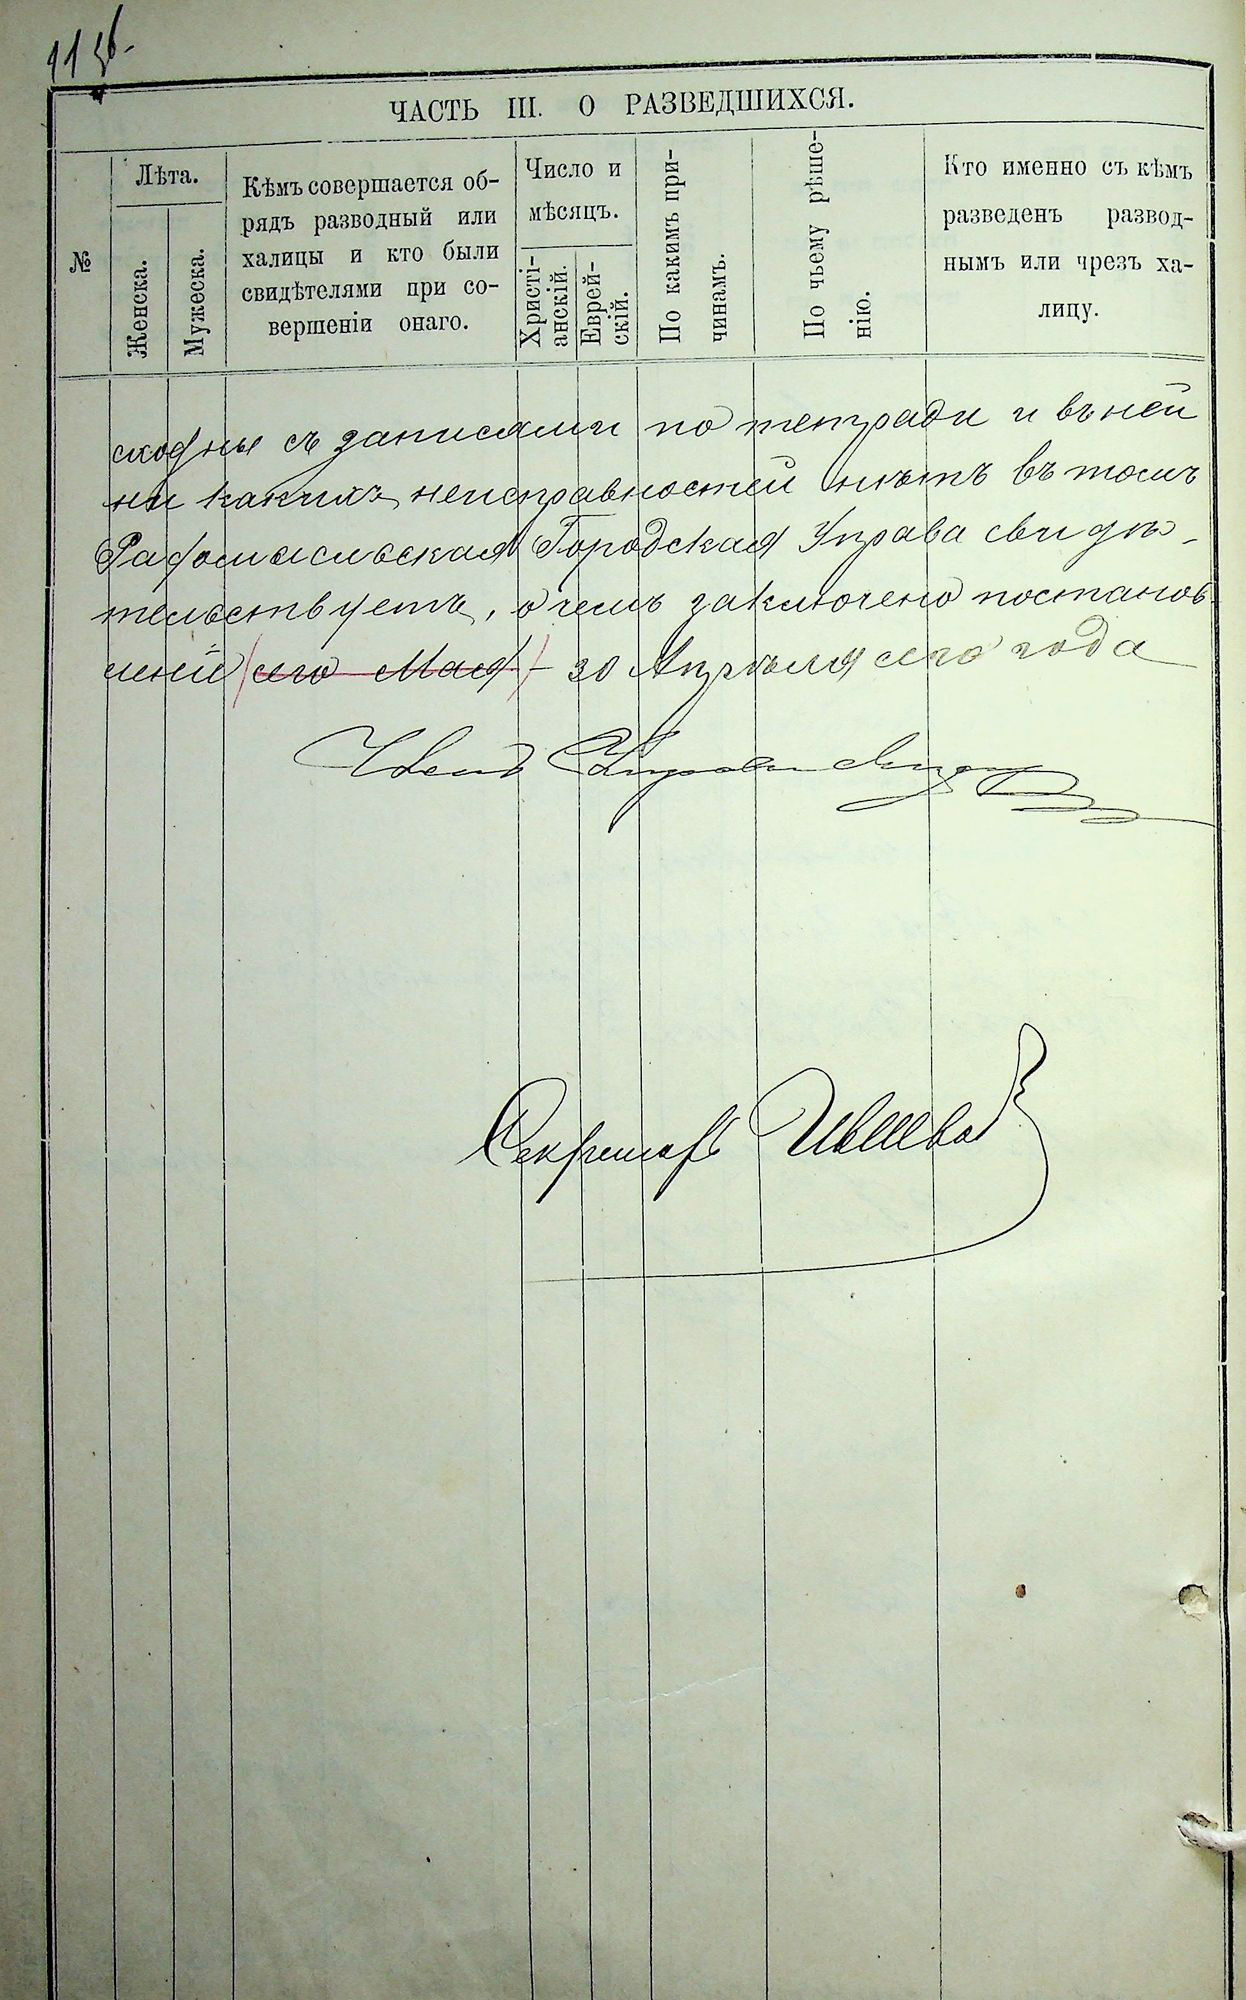 ЧАСТЬ III. О РАЗВЕДШИХСЯ.
№
Лѣта.
Женска.
Мужеска.
Кѣмъ совершается об-
рядъ разводный или
халицы и кто были
свидѣтелями при со-
вершеніи онаго.
Число и
мѣсяцъ.
Христі-
анскій.
Еврей-
скій.
По какимъ при-
чинамъ.
По чьему рѣше-
нію.
Кто именно съ кѣмъ
разведенъ развод-
нымъ или чрезъ ха-
лицу.
сходны съ записями по тетради и въ ней
ни какихъ неисправностей нѣтъ въ томъ
Радомысльская Городская Управа свидѣ-
тельствуетъ, о чемъ заключено постанов-
леніе (сего Мая) – 30 Апрѣля сего года
Членъ Управы
Секретарь